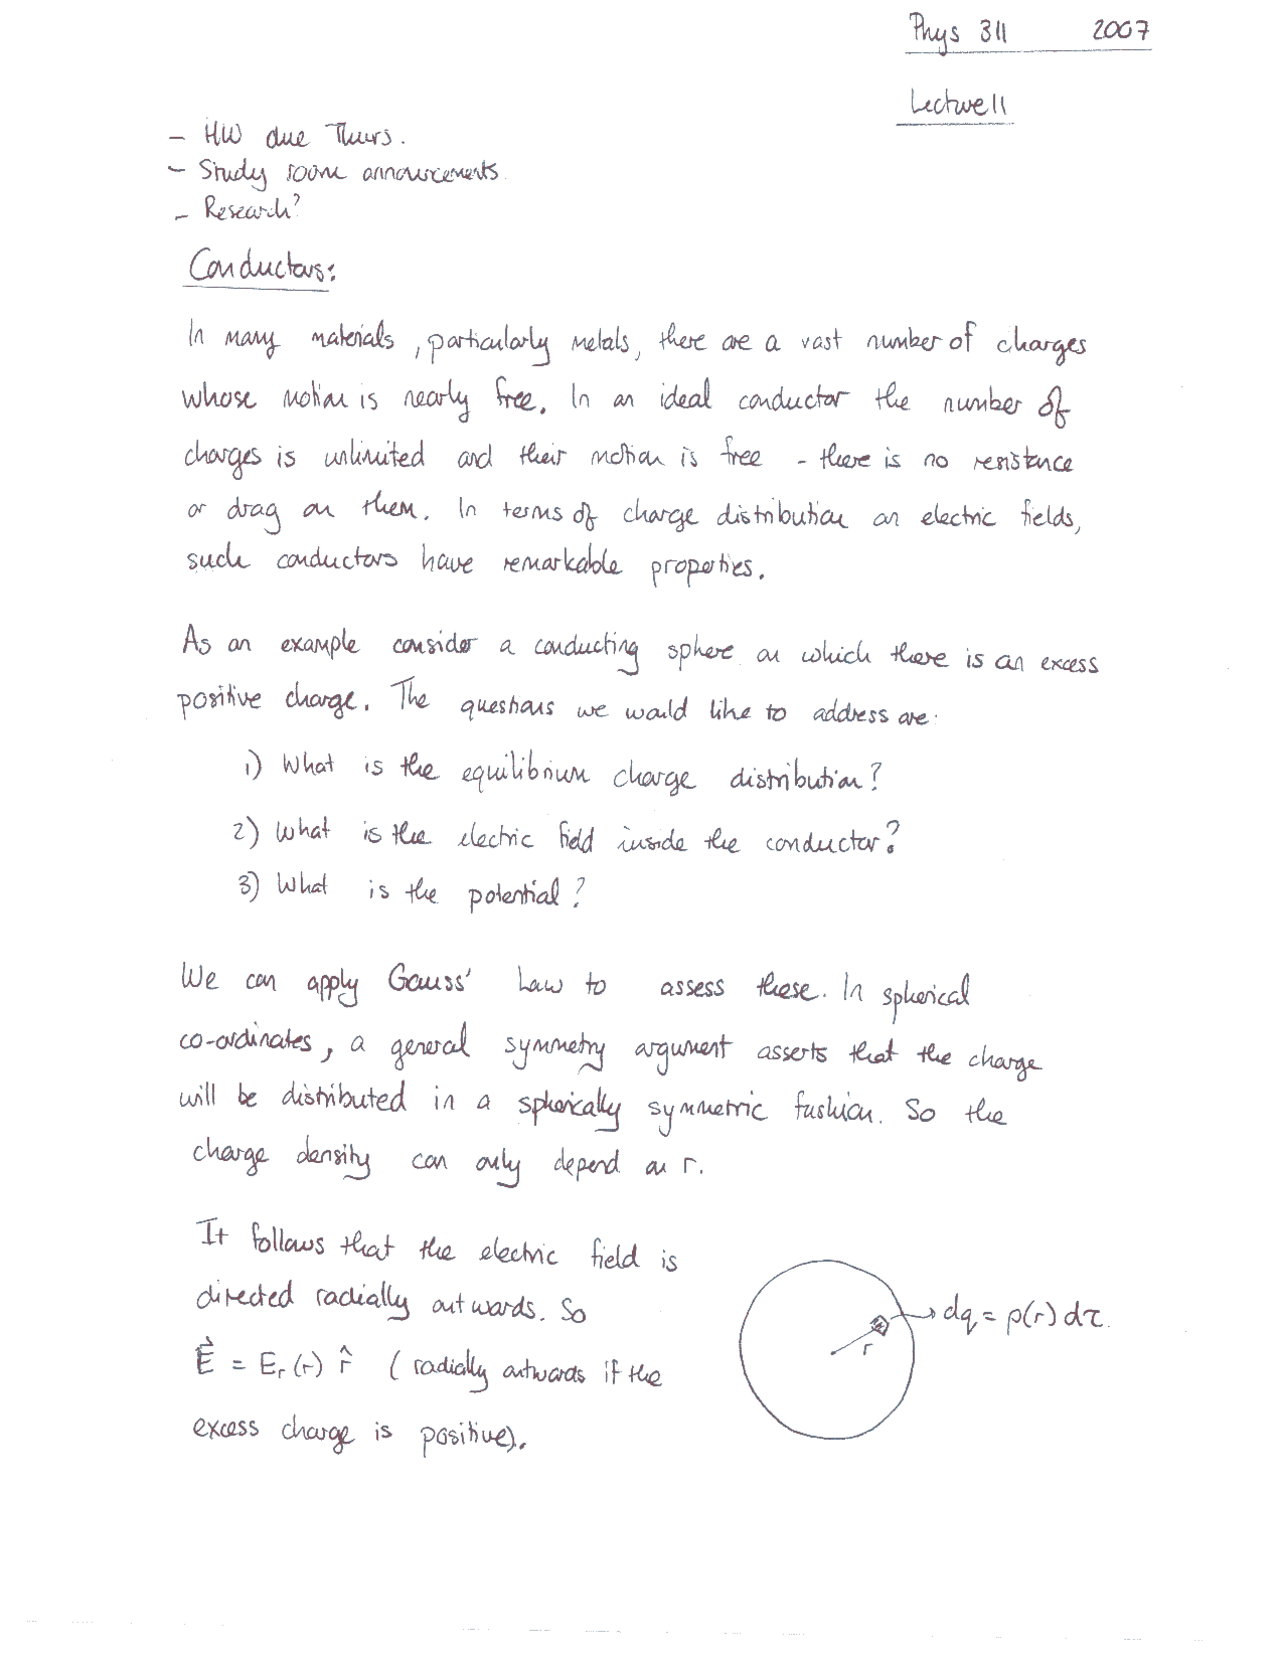 Phys 311 2007
Lecture 11
- HW due Thurs.
- Study room announcements
- Research?
Conductors:
In many materials, particularly metals, there are a vast number of charges
whose motion is nearly free. In an ideal conductor the number of
charges is unlimited and their motion is free - there is no resistance
or drag on them. In terms of charge distribution on electric fields,
such conductors have remarkable properties.
As an example consider a conducting sphere on which there is an excess
positive charge. The questions we would like to address are:
1) What is the equilibrium charge distribution?
2) What is the electric field inside the conductor?
3) What is the potential?
We can apply Gauss' Law to assess these. In spherical
co-ordinates, a general symmetry argument asserts that the charge
will be distributed in a spherically symmetric fashion. So the
charge density can only depend on r.
It follows that the electric field is
directed radially outwards. So
E⃗ = Er(r) r̂ (radially outwards if the
excess charge is positive).
r
dq = ρ(r) dτ.